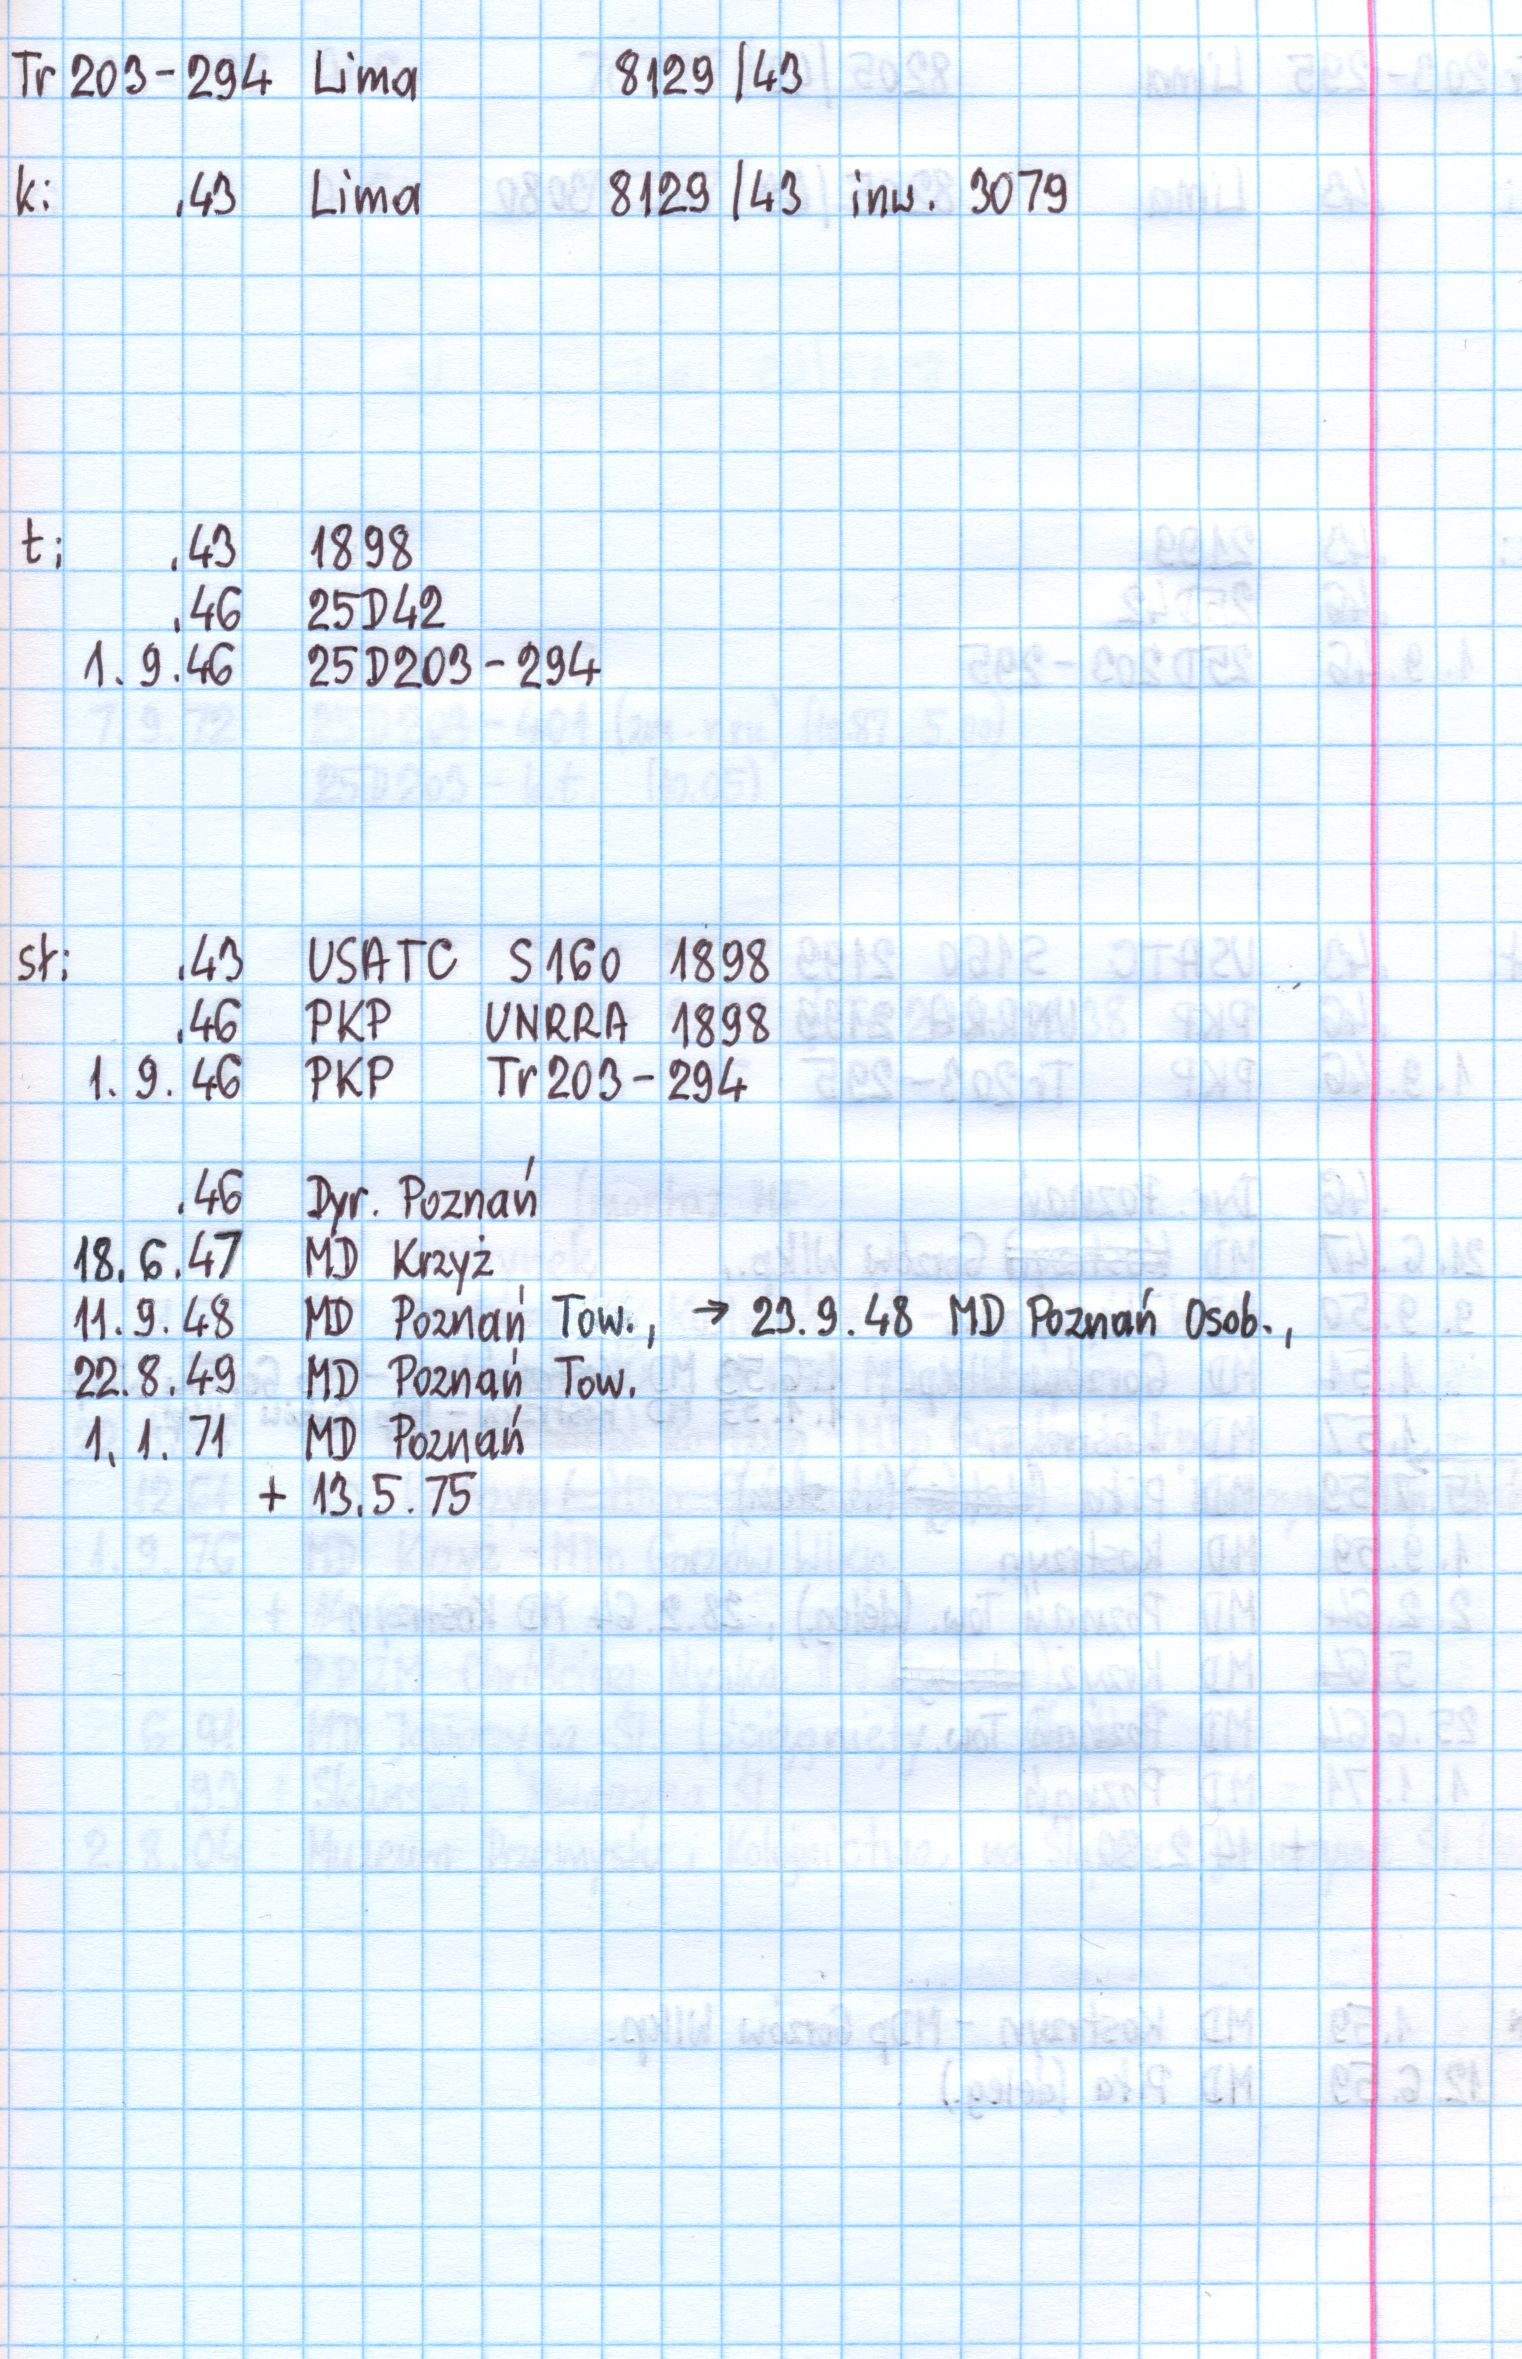 Tr 203-294 Lima 8129/43
k: .43 Lima 8129/43 inw. 3079
t: .43 1898
.46 25D42
1.9.46 25D203-294
st: .43 USATC S160 1898
.46 PKP UNRRA 1898
1.9.46 PKP Tr203-294
.46 Dyr. Poznań
18.6.47 MD Krzyż
11.9.48 MD Poznań Tow., → 23.9.48 MD Poznań Osob.,
22.8.49 MD Poznań Tow.
1.1.71 MD Poznań
+ 13.5.75